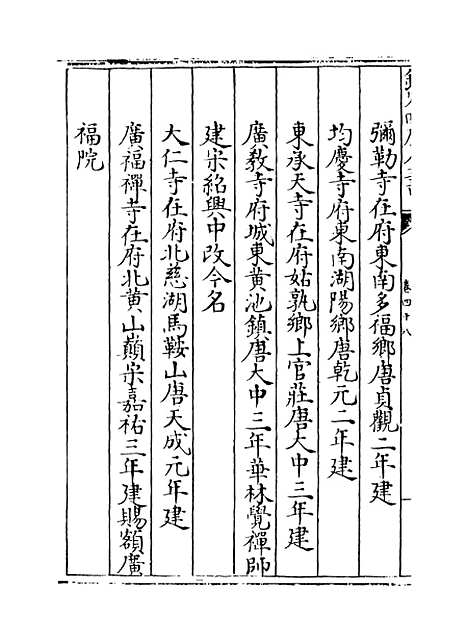 彌勒寺在府東南多福鄉唐貞觀二年建
均慶寺府東南湖陽鄉唐乾元二年建
東承天寺在府姑孰鄉上官莊唐大中三年建
廣教寺府城東黄池鎮唐大中三年華林覺禪師
建宋紹興中改今名
大仁寺在府北慈湖馬鞍山唐天成元年建
廣福禪寺在府北黄山巔宋嘉祐三年建賜額廣
福院
卷四十八